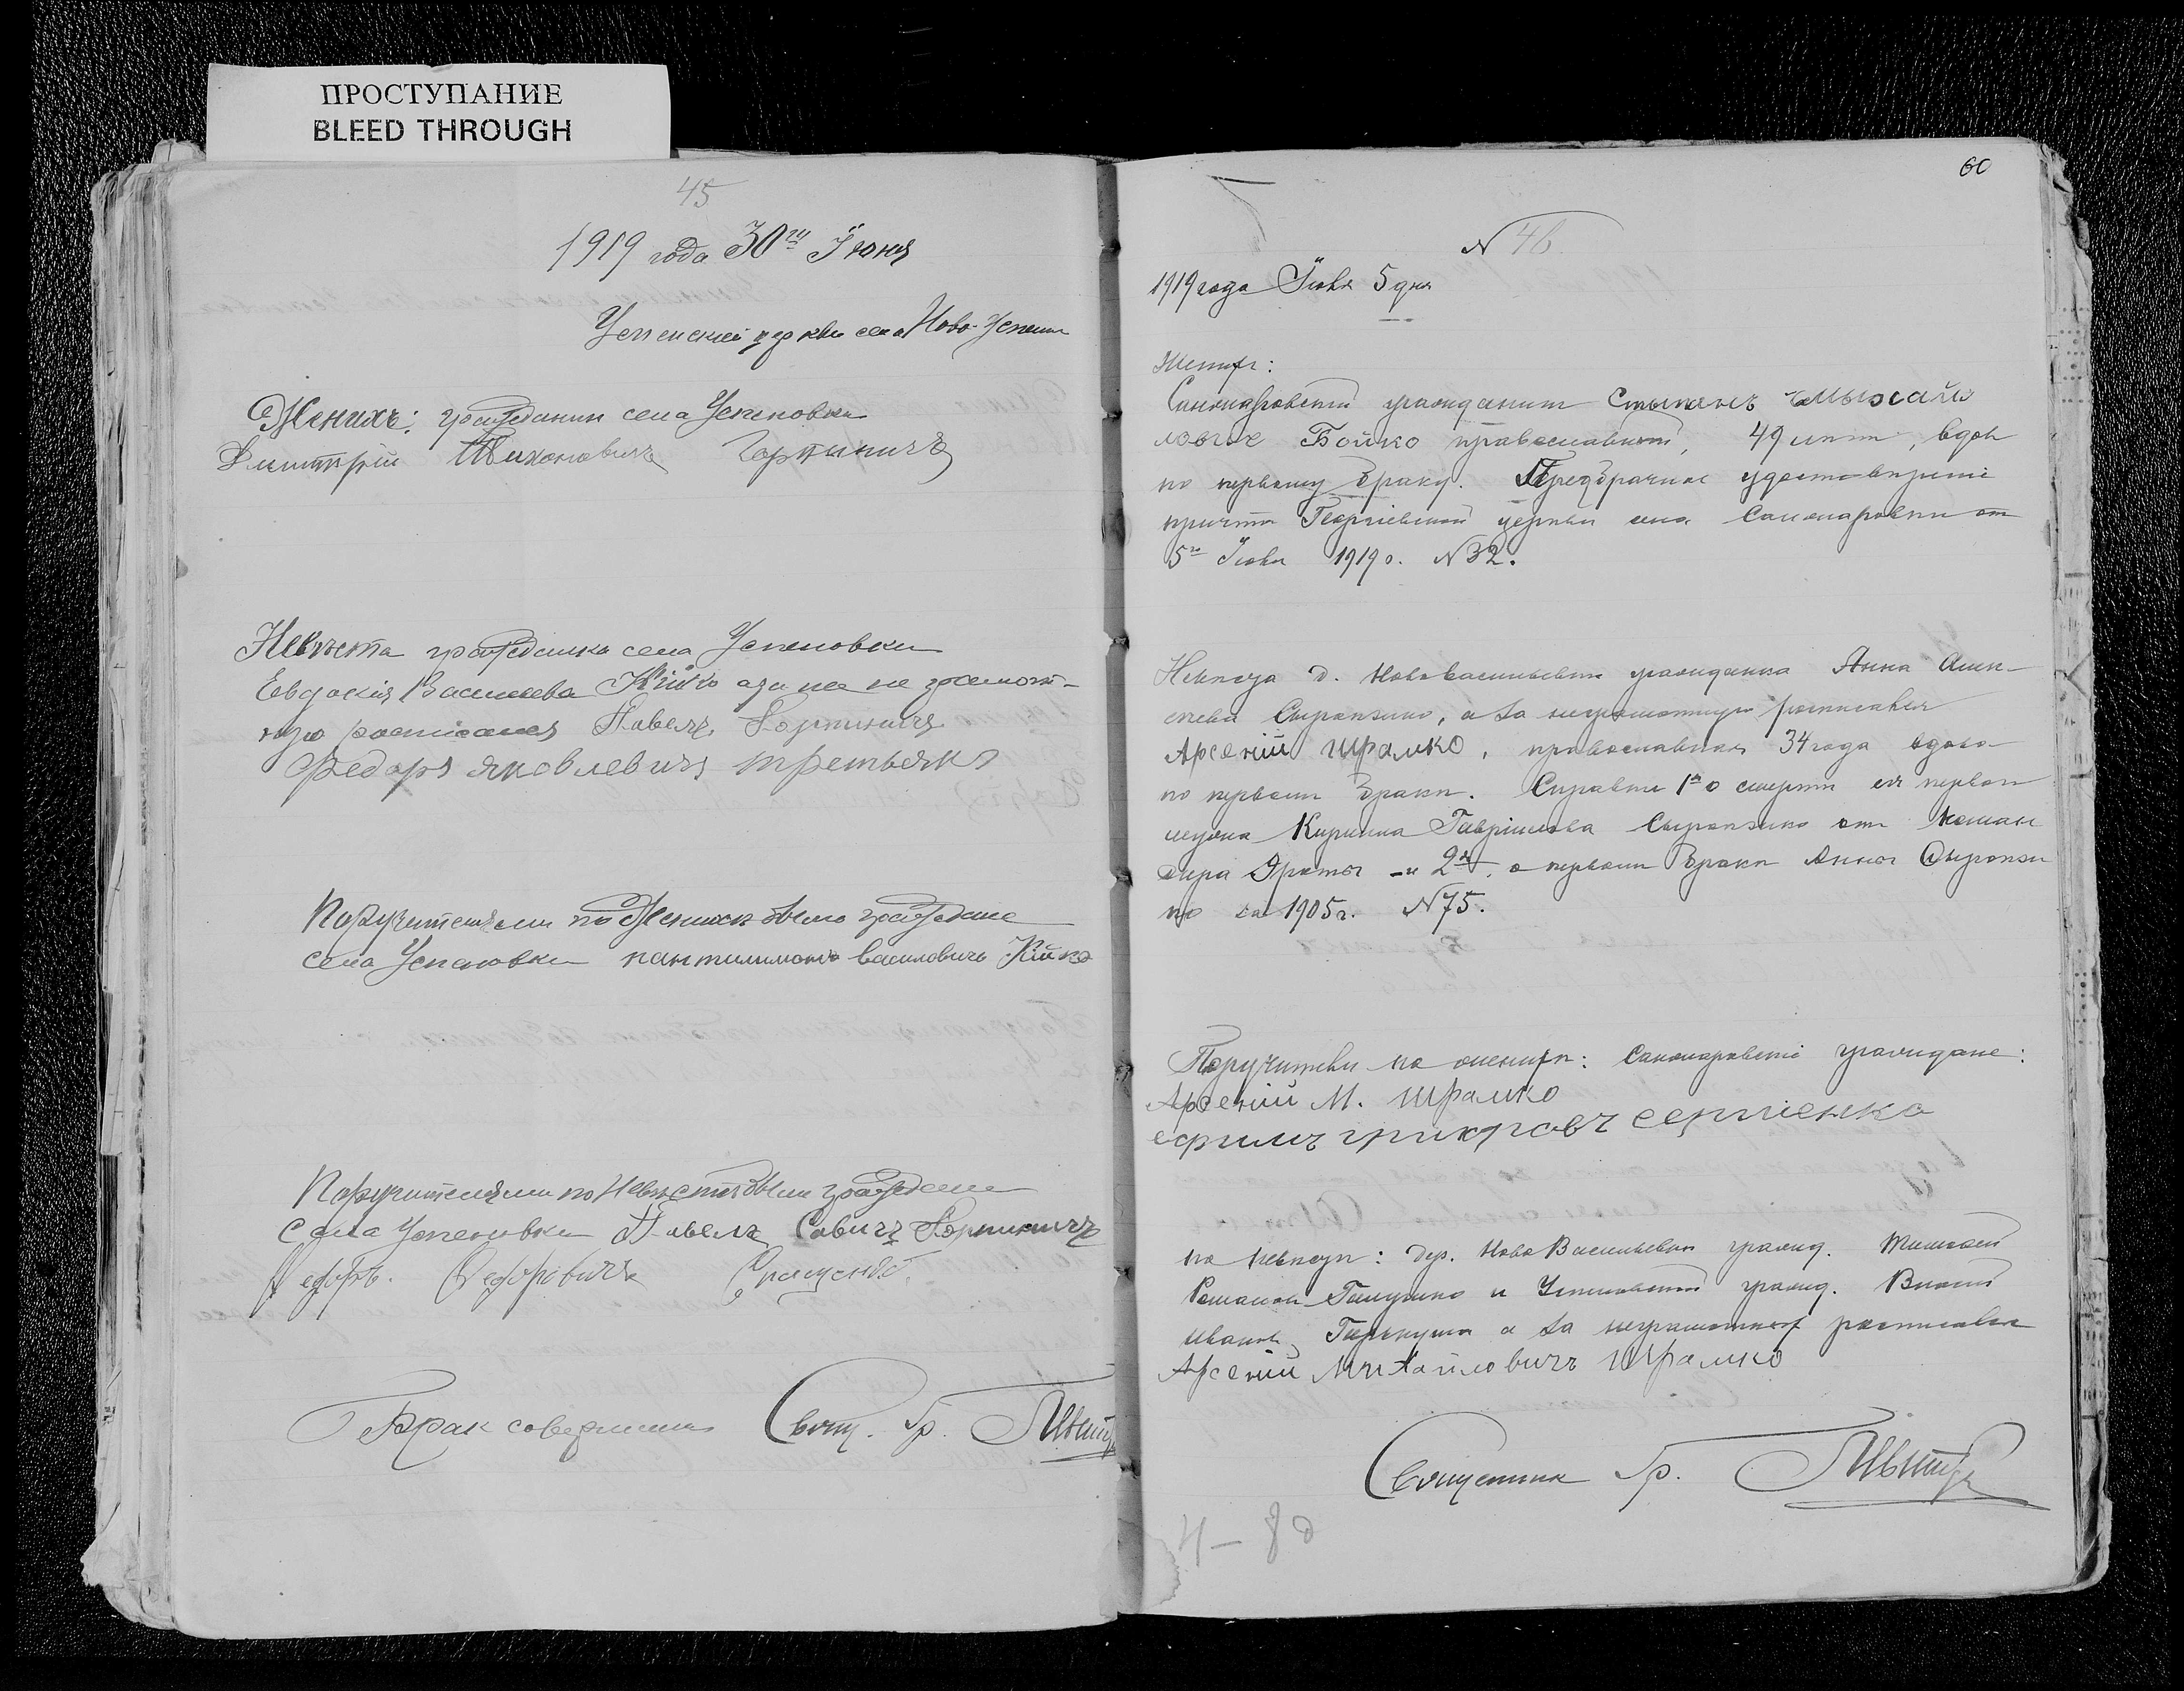 ПРОСТУПАНИЕ
BLEED THROUGH
45
1919 года 30го Іюня
Успенской церкви села Ново-Успен
Женихъ: гражданин села Успеновки
Димитрій Тихоновичъ Гартыничъ
Невѣста гражданка села Успеновки
Евдокія Васильева Кійко а за нее не грамот-
ную росписался Павелъ
Федоръ яковлевичъ третьякъ
Поручителями по Женихѣ были граждане
села Успеновки пантилимонъ василовичъ Кійко
Поручителями по Невѣстѣ были граждане
села Успеновки Павелъ Савичъ
Федоръ. Федоровичъ
Брак совершил Свящ. Гр.
60
N 46
1919 года Іюня 5 дня
Жених:
гражданин Стыпанъ Мыхайло
Бойко православный, 49 лет, вдов
по первому браку. Предбрачное удостоверение
причта Георгіевской церкви села
5го Іюня 1919 г. N 32.
Невеста д. Нововасильевки гражданка Анна Алек-
сеева , а за неграмотную росписался
Арсеній Шрамко, православная 34 года вдова
по первом браке. Справки 1я о смерти ея перваго
мужа Кирилла Гавріилова от коман
дира и 2я о первом браке Анны
ко за 1905 г. N 75.
Поручители по жениху: граждане:
Арсеній М. Шрамко
ефимъ сергіенко
по невесте: дер. Ново Васильевки гражд. Тимофей
Романов и Успеновский гражд.
Иванов а за неграмотных росписался
Арсеній Михайловичъ Шрамко
Священник Гр.